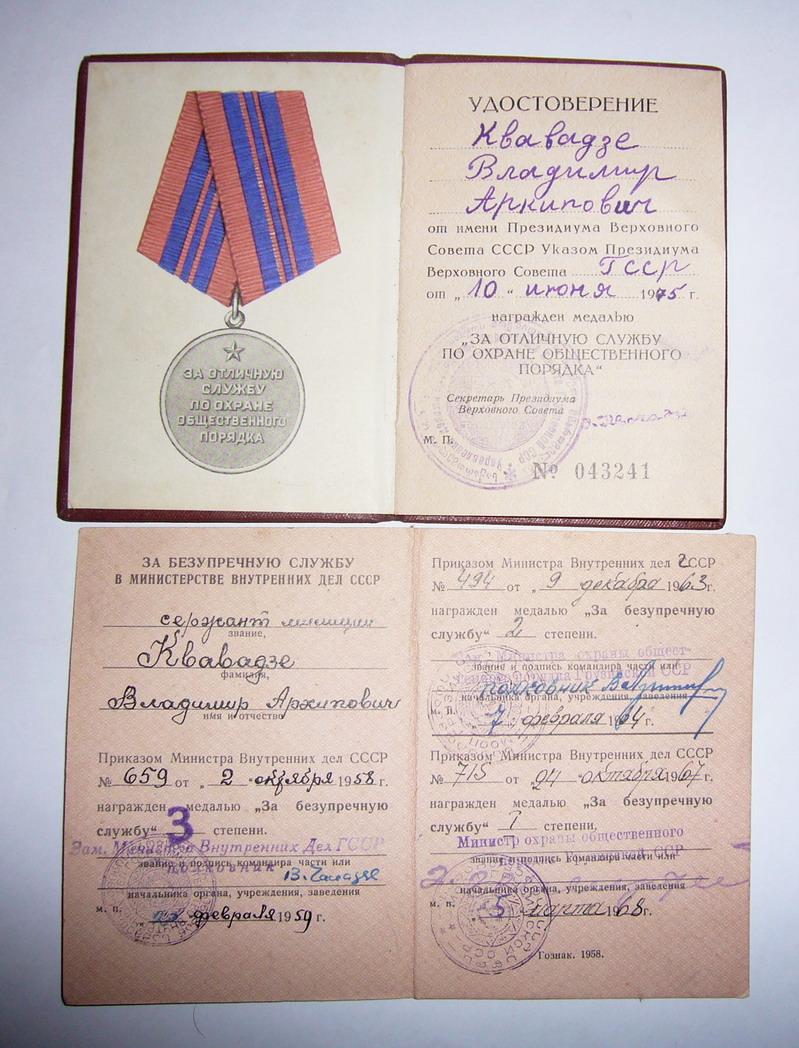 ЗА ОТЛИЧНУЮ
СЛУЖБУ
ПО ОХРАНЕ
ОБЩЕСТВЕННОГО
ПОРЯДКА
УДОСТОВЕРЕНИЕ
Квавадзе
Владимир
Архипович
от имени Президиума Верховного
Совета СССР Указом Президиума
Верховного Совета ГССР
от „10" июня 1975 г.
награжден медалью
„ЗА ОТЛИЧНУЮ СЛУЖБУ
ПО ОХРАНЕ ОБЩЕСТВЕННОГО
ПОРЯДКА"
Секретарь Президиума
Верховного Совета
М. П.
№ 043241
ЗА БЕЗУПРЕЧНУЮ СЛУЖБУ
В МИНИСТЕРСТВЕ ВНУТРЕННИХ ДЕЛ СССР
сержант милиции
звание,
Квавадзе
фамилия,
Владимир Архипович
имя и отчество
Приказом Министра Внутренних дел СССР
№ 659 от „2" октября 1958 г.
награжден медалью „За безупречную
службу" 3 степени.
Зам. Министра Внутренних Дел ГССР
звание и подпись командира части или
полковник
начальника органа, учреждения, заведения
м. п.
февраля 1959 г.
Приказом Министра Внутренних дел ГССР
№ 494 от „9 декабря 1963 г.
награжден медалью „За безупречную
службу" 2 степени.
Зам. Министра охраны общест-
звание и подпись командира части или
венного порядка Грузинской ССР
полковник
начальника органа, учреждения, заведения
м. п.
7 февраля 1964 г.
Приказом Министра Внутренних дел СССР
№ 715 от „24 октября 1967 г.
награжден медалью „За безупречную
службу" I степени.
Министр охраны общественного
звание и подпись командира части или
ССР
начальника органа, учреждения, заведения
м. п.
5 марта 1968 г.
Гознак. 1958.